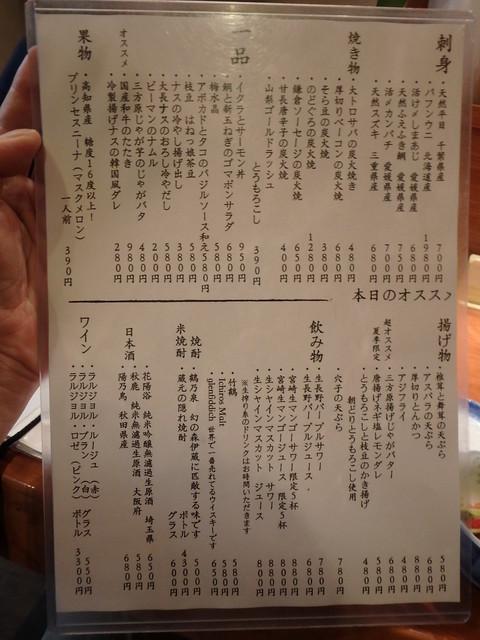 刺身
・天然平目 千葉県産 700円
・バフンウニ 北海道産 1980円
・活けしまあじ 愛媛県産 680円
・天然ふえふき鯛 愛媛県産 750円
・活メカンパチ 愛媛県産 700円
・天然スズキ 三重県産 680円
焼き物
・大トロサバの炭火焼き 480円
・厚切りベーコンの炭火焼 680円
・そら豆の炭火焼 380円
・のどぐろの炭火焼 1280円
・鎌倉ソーセージの炭火焼 650円
・甘長唐辛子の炭火焼 400円
・山梨ゴールドラッシュ
とうもろこし 390円
一品
・イクラとサーモン丼 950円
・鯛と新玉ねぎのゴマポンサラダ 680円
・梅水晶 580円
・アボカドとタコのバジルソース和え 580円
・枝豆 はねっ娘茶豆 580円
・ナスの冷やし揚げ出し 380円
・大長ナスのおろし冷やだし 580円
・ピーマンのナムル 200円
・三方原じゃが芋のじゃがバタ 480円
・国産和牛のたたき 980円
オススメ
・冷製揚げナスの韓国風ダレ 280円
果物
・高知県産 糖度16度以上!
プリンセスニーナ(マスクメロン)
一人前 390円
本日のオススメ
揚げ物
・椎茸と舞茸の天ぷら 580円
・アスパラの天ぷら 680円
・厚切りとんかつ 880円
・アジフライ 480円
・三方原揚げじゃがバター
超オススメ
・唐揚げネギ塩レモンダレ 580円
夏季限定
・とうもろこしと枝豆のかき揚げ 480円
朝どりとうもろこし使用
・穴子の天ぷら 780円
飲み物
・生長野パープルサワー 780円
・生長野パープルジュース 680円
・宮崎生マンゴーサワー 限定5杯 880円
・宮崎生マンゴージュース 限定5杯 880円
・生シャインマスカット サワー 880円
・生シャインマスカット ジュース 880円
※生搾り系のドリンクはお時間いただきます
・竹鶴 580円
・Ichiros Malt 550円
・glenfiddich 世界で一番売れてるウイスキーです 650円
焼酎
・鶴乃泉 幻の森伊蔵に匹敵する味です 500円
米焼酎
・蔵元の隠れ焼酎 ボトル 4300円
グラス 600円
日本酒
・花陽浴 純米吟醸無濾過生原酒 埼玉県 650円
・秋鹿 純米無濾過生原酒 大阪府 580円
・陽乃鳥 秋田県産 680円
ワイン
・ラルジョル・ルージュ(赤) グラス 550円
・ラルジョル・ブラン(白)
・ラルジョル・ロゼ(ピンク) ボトル 3300円